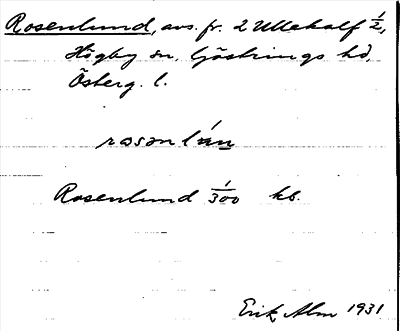 Rosenlund, avs. fr. 2 Ullekalf 1/2,
Högby sn, Göstrings hd,
Österg. l.
rosənlún
Rosenlund 1/300 kb.
Erik Alm 1931